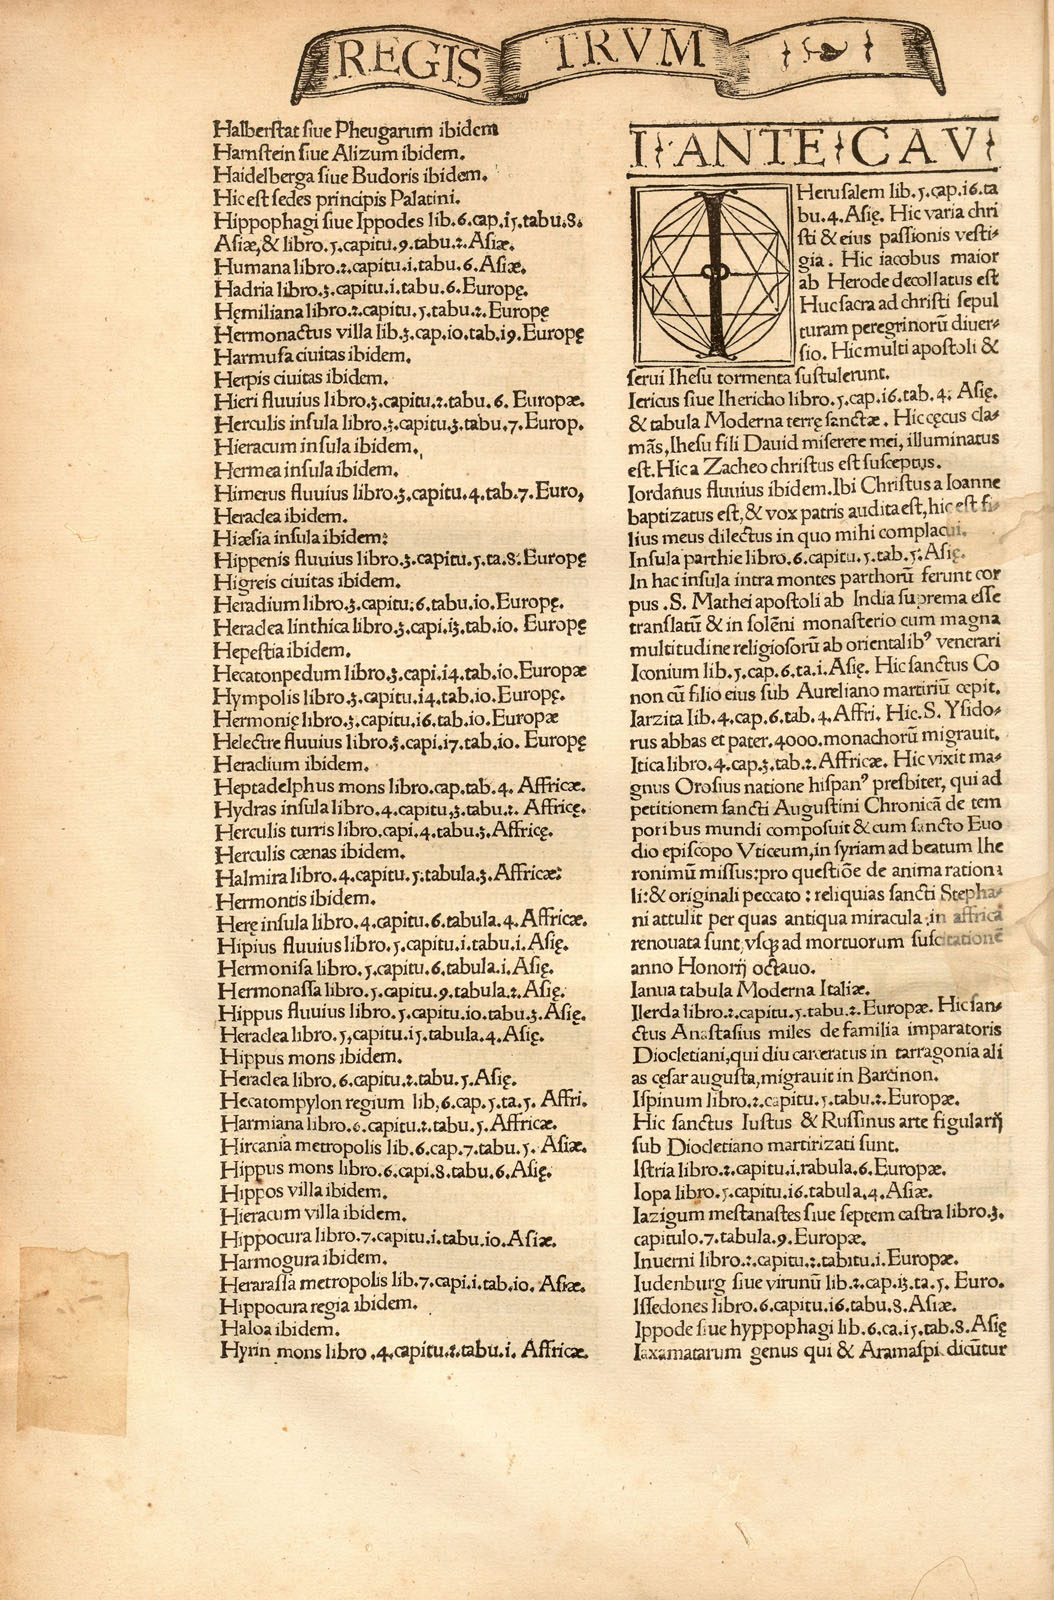 REGISTRVM
Halberstat siue Pheugarum ibidem
Harnstein siue Alizum ibidem.
Haidelberga siue Budoris ibidem.
Hic est sedes principis Palatini.
Hippophagi siue Ippodes lib.6.cap.15.tabu.8.
Asiæ,& libro.5.capitu.9.tabu.2.Asiæ.
Humana libro.2.capitu.i.tabu.6.Asiæ.
Hadria libro.3.capitu.i.tabu.6.Europę.
Hęmiliana libro.2.capitu.5.tabu.2.Europę
Hermonactus villa lib.3.cap.10.tab.19.Europę
Harmusa ciuitas ibidem.
Herpis ciuitas ibidem.
Hieri fluuius libro.3.capitu.2.tabu.6. Europæ.
Herculis insula libro.3.capitu.3.tabu.7.Europ.
Hieracum insula ibidem.
Hermea insula ibidem.
Himerus fluuius libro.3.capitu.4.tab.7.Euro,
Heraclea ibidem.
Hiæsia insula ibidem:
Hippenis fluuius libro.3.capitu.5.ta.8.Europę
Higreis ciuitas ibidem.
Heraclium libro.3.capitu:6.tabu.10.Europę.
Heraclea linthica libro.3.capi.13.tab.10. Europę
Hepestia ibidem.
Hecatonpedum libro.3.capi.14.tab.10.Europæ
Hympolis libro.3.capitu.14.tab.10.Europę.
Hermonię libro.3.capitu.16.tab.10.Europæ
Helectre fluuius libro.3.capi.17.tab.10. Europę
Heraclium ibidem.
Heptadelphus mons libro.cap.tab.4. Affricæ.
Hydras insula libro.4.capitu,3.tabu.2. Affricę.
Herculis turris libro.capi.4.tabu.3.Affricę.
Herculis cænas ibidem.
Halmira libro.4.capitu.5.tabula.3.Affricæ:
Hermontis ibidem.
Herę insula libro.4.capitu.6.tabula.4.Affricæ.
Hipius fluuius libro.5.capitu.i.tabu.i.Asię.
Hermonisa libro.5.capitu.6.tabula.i.Asię.
Hermonassa libro.5.capitu.9.tabula.2.Asię.
Hippus fluuius libro.5.capitu.10.tabu.3.Asię.
Heraclea libro.5,capitu.15.tabula.4.Asię.
Hippus mons ibidem.
Heraclea libro.6.capitu.2.tabu.5.Asię.
Hecatompylon regium lib,6.cap.5.ta.5. Affri.
Harmiana libro.6.capitu.2.tabu.5.Affricæ.
Hircania metropolis lib.6.cap.7.tabu.5. Asiæ.
Hippus mons libro.6.capi.8.tabu.6.Asię.
Hippos villa ibidem.
Hieracum villa ibidem.
Hippocura libro.7.capitu.i.tabu.10.Asiæ.
Harmogura ibidem.
Herarassa metropolis lib.7.capi.i.tab.10. Asiæ.
Hippocura regia ibidem.
Haloa ibidem.
Hyrin mons libro.4.capitu.2.tabu.i. Affricæ.
I ANTE CAV
IHerusalem lib.5.cap.16.ta
bu.4.Asię. Hic varia chri
sti & eius passionis vesti-
gia. Hic iacobus maior
ab Herode decollatus est
Huc sacra ad christi sepul
turam peregrinorū diuer-
sio. Hic multi apostoli &
serui Ihesu tormenta sustulerunt.
Iericus siue Ihericho libro.5.cap.16.tab.4. Asię.
& tabula Moderna terrę sanctæ. Hic cęcus cla-
mās,Ihesu fili Dauid miserere mei, illuminatus
est.Hic a Zacheo christus est susceptus.
Iordanus fluuius ibidem.Ibi Christus a Ioanne
baptizatus est,& vox patris audita est,hic est fi-
lius meus dilectus in quo mihi complacui.
Insula parthie libro.6.capitu.5.tab.5:Asię.
In hac insula intra montes parthorū ferunt cor
pus.S. Mathei apostoli ab India suprema esse
translatū & in solēni monasterio cum magna
multitudine religiosorū ab orientalibꝰ venerari
Iconium lib.5.cap.6.ta.i.Asię. Hic sanctus Co
non cū filio eius sub Aureliano martiriū cepit.
Iarzita lib.4.cap.6.tab.4.Affri. Hic.S. Ysido-
rus abbas et pater.4000.monachorū migrauit.
Itica libro.4.cap.3.tab.2.Affricæ. Hic vixit ma-
gnus Orosius natione hispanꝰ presbiter, qui ad
petitionem sancti Augustini Chronicā de tem
poribus mundi composuit & cum sancto Euo
dio episcopo Vticeum,in syriam ad beatum Ihe
ronimū missus:pro questiōe de anima rationa
li:& originali peccato: reliquias sancti Stepha-
ni attulit per quas antiqua miracula in affrica
renouata sunt vsqꝫ ad mortuorum suscitationē
anno Honorij octauo.
Ianua tabula Moderna Italiæ.
Ilerda libro.2.capitu.5.tabu.2.Europæ. Hic san-
ctus Anastasius miles de familia imparatoris
Diocletiani,qui diu carceratus in tarragonia ali
as cęsar augusta,migrauit in Barcinon.
Ispinum libro.2.capitu.5.tabu.2.Europæ.
Hic sanctus Iustus & Russinus arte figularij
sub Diocletiano martirizati sunt.
Istria libro.2.capitu.i.rabula.6.Europæ.
Iopa libro.5.capitu.16.tabula.4.Asiæ.
Iazigum mestanastes siue septem castra libro.3.
capitulo.7.tabula.9.Europæ.
Inuerni libro:2.capitu.2.tabitu.i.Europæ.
Iudenburg siue virunū lib.2.cap.13.ta.5. Euro.
Issedones libro.6.capitu.16.tabu.8.Asiæ.
Ippode siue hyppophagi lib.6.ca.15.tab.8.Asię
Iaxamatarum genus qui & Aramaspi dicūtur